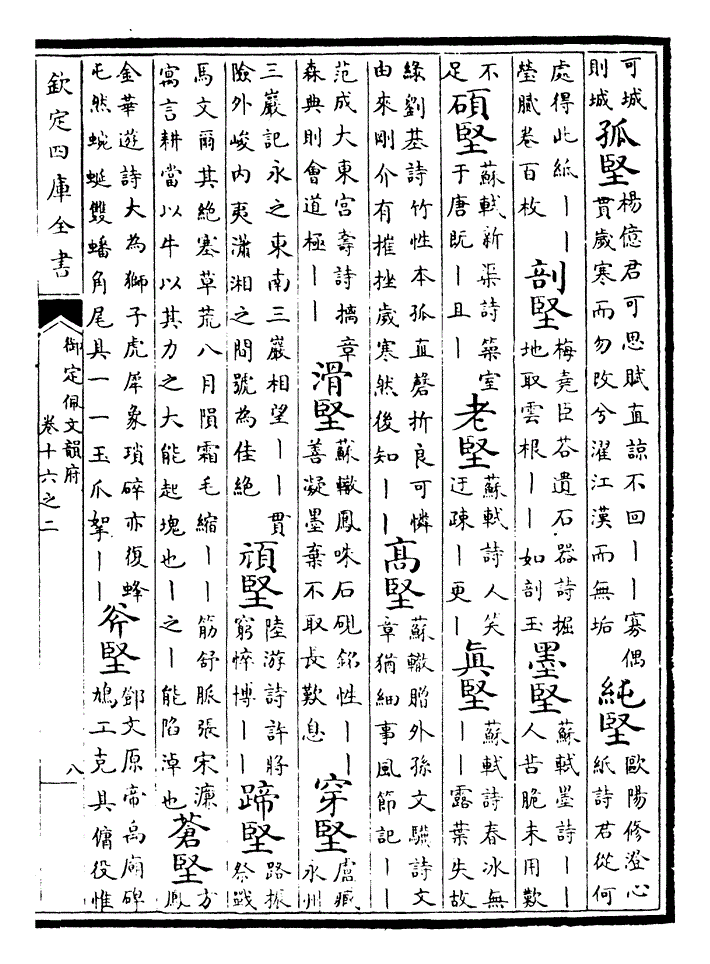 可城則城孤堅楊億君可思賦直諒不回丨丨寡偶貫歲寒而勿改兮濯江漢而無垢純堅歐陽修澄心紙詩君從何
處得此紙丨丨瑩膩卷百枚剖堅梅堯臣荅遺石器詩掘地取雲根丨丨如剖玉墨堅蘇軾墨詩丨丨人苦脆未用歎
不足碩堅蘇軾新渠詩築室于唐既丨且丨老堅蘇軾詩人笑迂疎丨更丨眞堅蘇軾詩春冰無丨丨露葉失故
綠劉基詩竹性本孤直磬折良可憐由來剛介有摧挫歲寒然後知丨丨高堅蘇轍贈外孫文驥詩文章猶細事風節記丨丨
范成大東宮壽詩摛章森典則會道極丨丨滑堅蘇轍鳳咮石硯銘性丨丨善凝墨棄不取長歎息穿堅盧臧永州
三巖記永之東南三巖相望丨丨貫險外峻內夷瀟湘之間號為佳絶頑堅陸游詩許將窮悴博丨丨蹄堅路振祭戰
馬文爾其絶塞草荒八月隕霜毛縮丨丨筋舒脈張宋濂寓言耕當以牛以其力之大能起塊也丨之丨能陷淖也蒼堅方鳳
金華遊詩大為獅子虎犀象瑣碎亦復蜂屯然蜿蜒雙蟠角尾具一一玉爪拏丨丨斧堅鄧文原帝禹廟碑鳩工克具傭役惟
欽定四庫全書
御定佩文韻府
卷十六之二
八